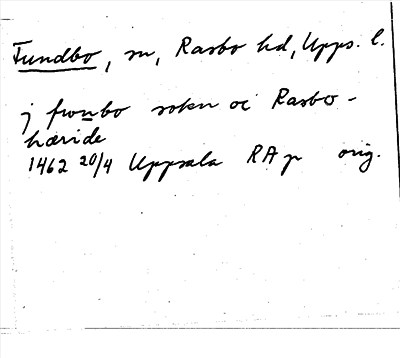 Fundbo, sn, Rasbo hd, Upps. l.
j fwnbo sokn oc Rasbo-
hæride
1462 20/4 Uppsala RAp orig.